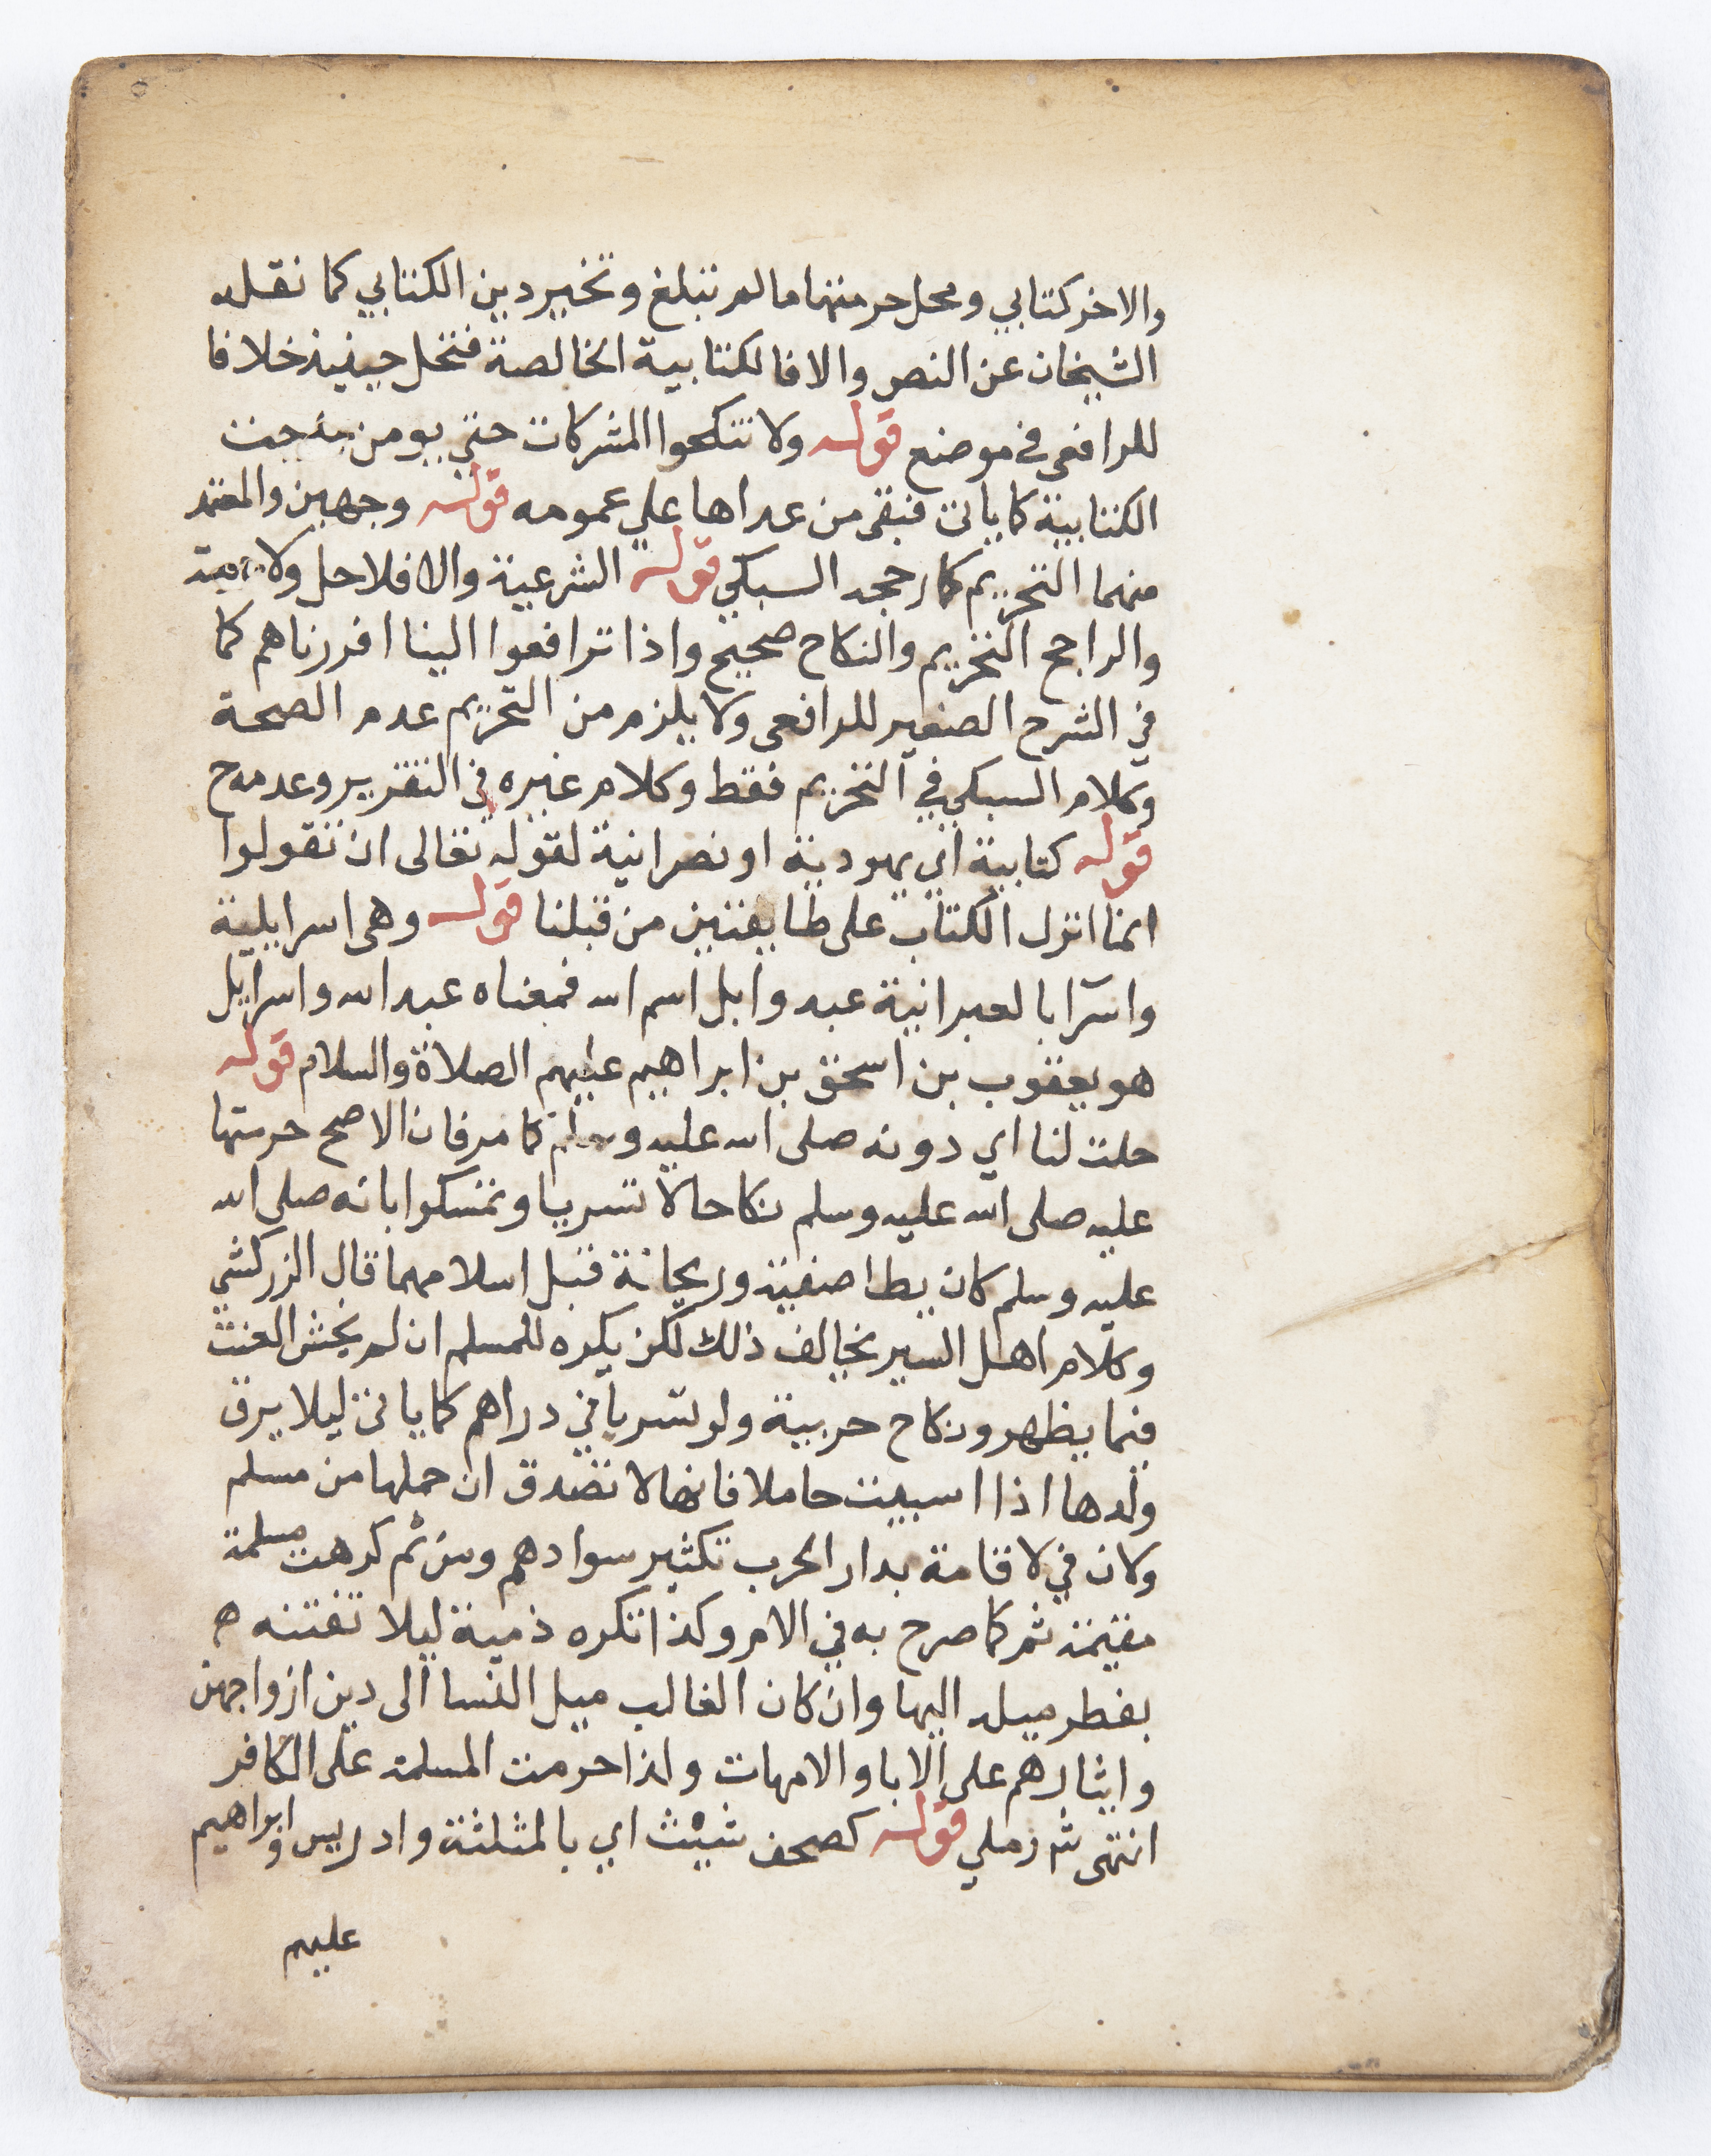 والاخر كتابي ومحل حرمتها ما لم تبلغ وتخير دين الكتابي كما نقله
الشيخان عن النص والا فالكتابية الخالصة فتحل حينيذ خلافا
للرافعي في موضع قوله ولا تنكحوا المشركات حتي يومن خرجت
الكتابية كما ياتي فبقي من عداها علي عمومه قوله وجهين والمعتمد
منهما التحريم كما رجحه السبكي قوله الشرعية والا فلا حل ولا حرمة
والراجح التحريم والنكاح صحيح واذا ترافعوا الينا اقررناهم كما
في الشرح الصغير للرافعي ولا يلزم من التحريم عدم الصحة
وكلام السبكي في التحريم فقط وكلام غيره في التقرير وعدمه ح
قوله كتابية اي يهودية او نصرانية لقوله تعالى ان تقولوا
انما انزل الكتاب على طايفتين من قبلنا قوله وهي اسرايلية
واسرا بالعبرانية عبد وايل اسم الله فمعناه عبد الله واسرايل
هو يعقوب بن اسحق بن ابراهيم عليهم الصلاة والسلام قوله
حلت لنا اي دونه صلى الله عليه وسلم كما مر فان الاصح حرمتها
عليه صلى الله عليه وسلم نكاحا لا تسريا وتمسكوا بانه صلى الله
عليه وسلم كان يطا صفية وريحانة قبل اسلامهما قال الزركشي
وكلام اهل السير يخالف ذلك لكن يكره للمسلم ان لم يخش العنت
فيما يظهر ونكاح حربية ولو تسريا في دراهم كما ياتي ليلا يرق
ولدها اذا اسبيت حاملا فانها لا تصدق ان حملها من مسلم
ولان في لاقامة بدار الحرب تكثير سوادهم ومن ثم كرهت مسلمة
مقيمة ثم كما صرح به في الام وكذا تكره ذمية ليلا تفتنه ه
بفطر ميله اليها وان كان الغالب ميل النسا الى دين ازواجهن
وايثارهم على الابا والامهات ولذا حرمت المسلمة على الكافر
انتهى شرملي قوله كصحف شيث اي بالمثلثة وادريس وابراهيم
عليهم